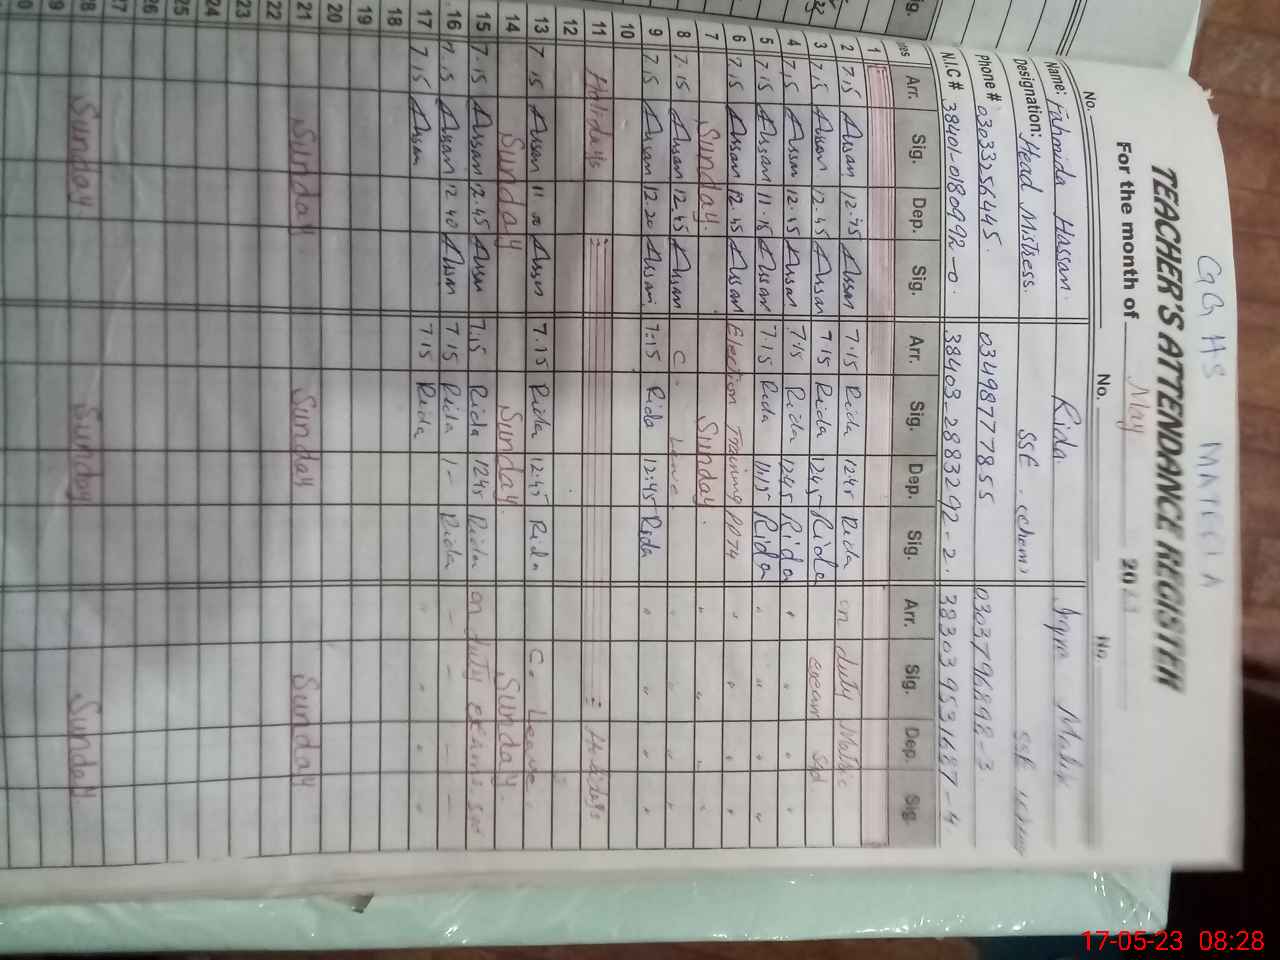 GGHS MATEELA
TEACHER'S ATTENDANCE REGISTER
For the month of May 2023
No. No. No.
Name: Fahmida Hassan Rida Malik
Designation: Head Mistress SSE (chem) SSE
Phone # 03033256445 03498777855 0303796898-3
N.I.C # 38401-0180992-0 38403-2883292-2 383039531687-4
Arr. Sig. Dep. Sig. Arr. Sig. Dep. Sig. Arr. Sig. Dep. Sig.
1
2 7.15 Ausan 12.45 Ausan 7.15 Rida 12:45 Rida on duty Matric
3 7.15 Ausan 12.45 Ausan 7.15 Rida 12:45 Rida exam
4 7.15 Ausan 12.45 Ausan 7.15 Rida 12:45 Rida
5 7.15 Ausan 11.15 Ausan 7.15 Rida 11:15 Rida
6 7.15 Ausan 12.45 Ausan Election Training
7 Sunday Sunday
8 7.15 Ausan 12.45 Ausan C. Leave
9 7.15 Ausan 12.20 Ausan 7:15 Rida 12:45 Rida
10
11 Holidays Holidays
12
13 7.15 Ausan 11 Ausan 7.15 Rida 12:45 Rida C. Leave
14 Sunday Sunday Sunday
15 7.15 Ausan 12.45 Ausan 7.15 Rida 12:45 Rida on duty exams
16 7.15 Ausan 12.40 Ausan 7.15 Rida 1- Rida
17 7.15 Ausan 7.15 Rida
18
19
20
21 Sunday Sunday Sunday
22
23
24
25
26
27
28 Sunday Sunday Sunday
17-05-23 08:28